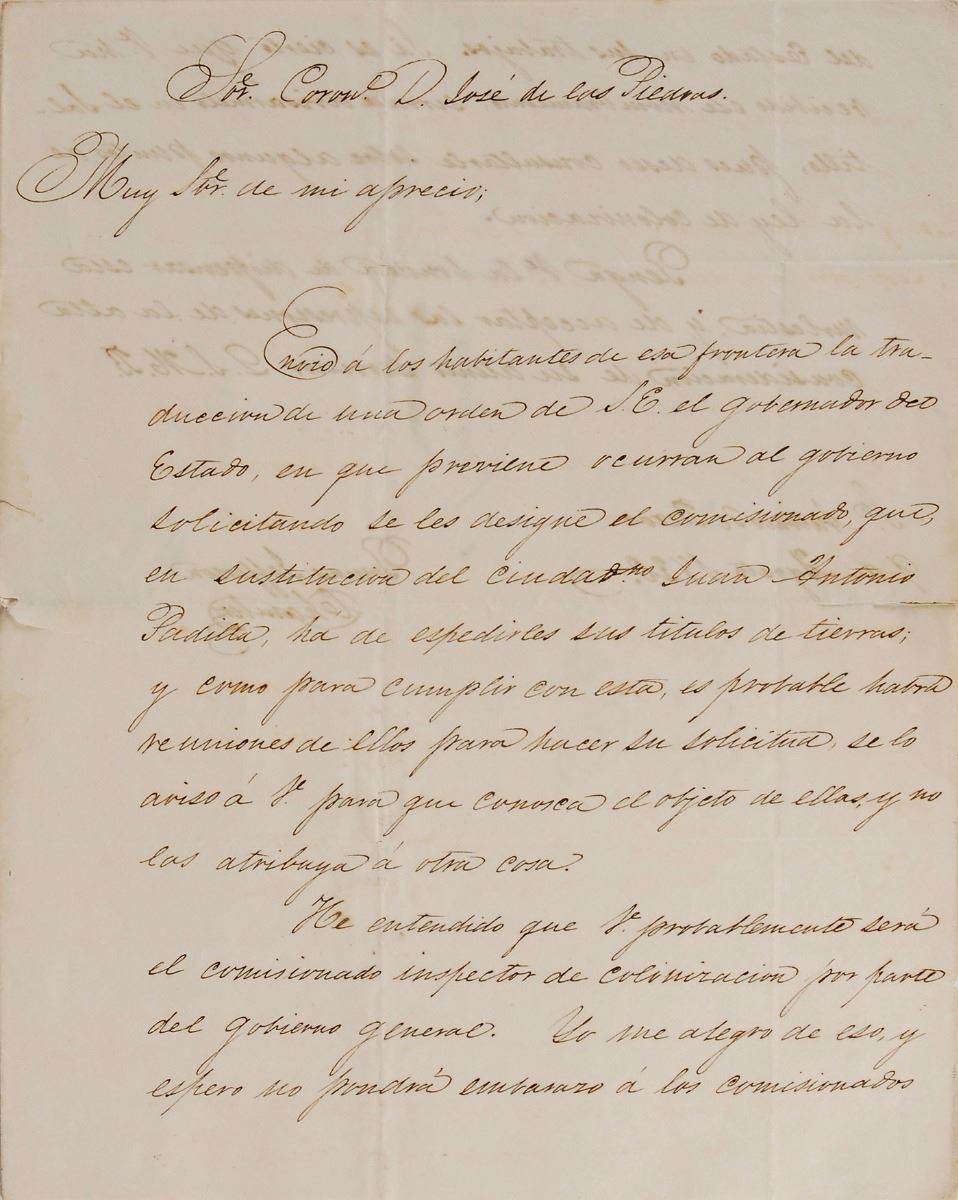 Sor. Coronl. D. José de las Piedras.
Muy Sor. de mi aprecio;
Envio á los habitantes de esa frontera la tra-
duccion de una orden de S. E. el gobernador del
Estado, en que previene ocurran al gobierno
solicitando se les designe el comisionado, que,
en sustitucion del ciudadno Juan Antonio
Padilla, ha de espedirles sus titulos de tierras;
y como para cumplir con esta, es probable habrá
reuniones de ellos para hacer su solicitud, se lo
aviso á V. para que conosca el objeto de ellas, y no
las atribuya á otra cosa.
He entendido que V. probablemente será
el comisionado inspector de colonizacion por parte
del gobierno general. Yo me alegro de eso, y
espero no pondrá embarazo á los comisionados